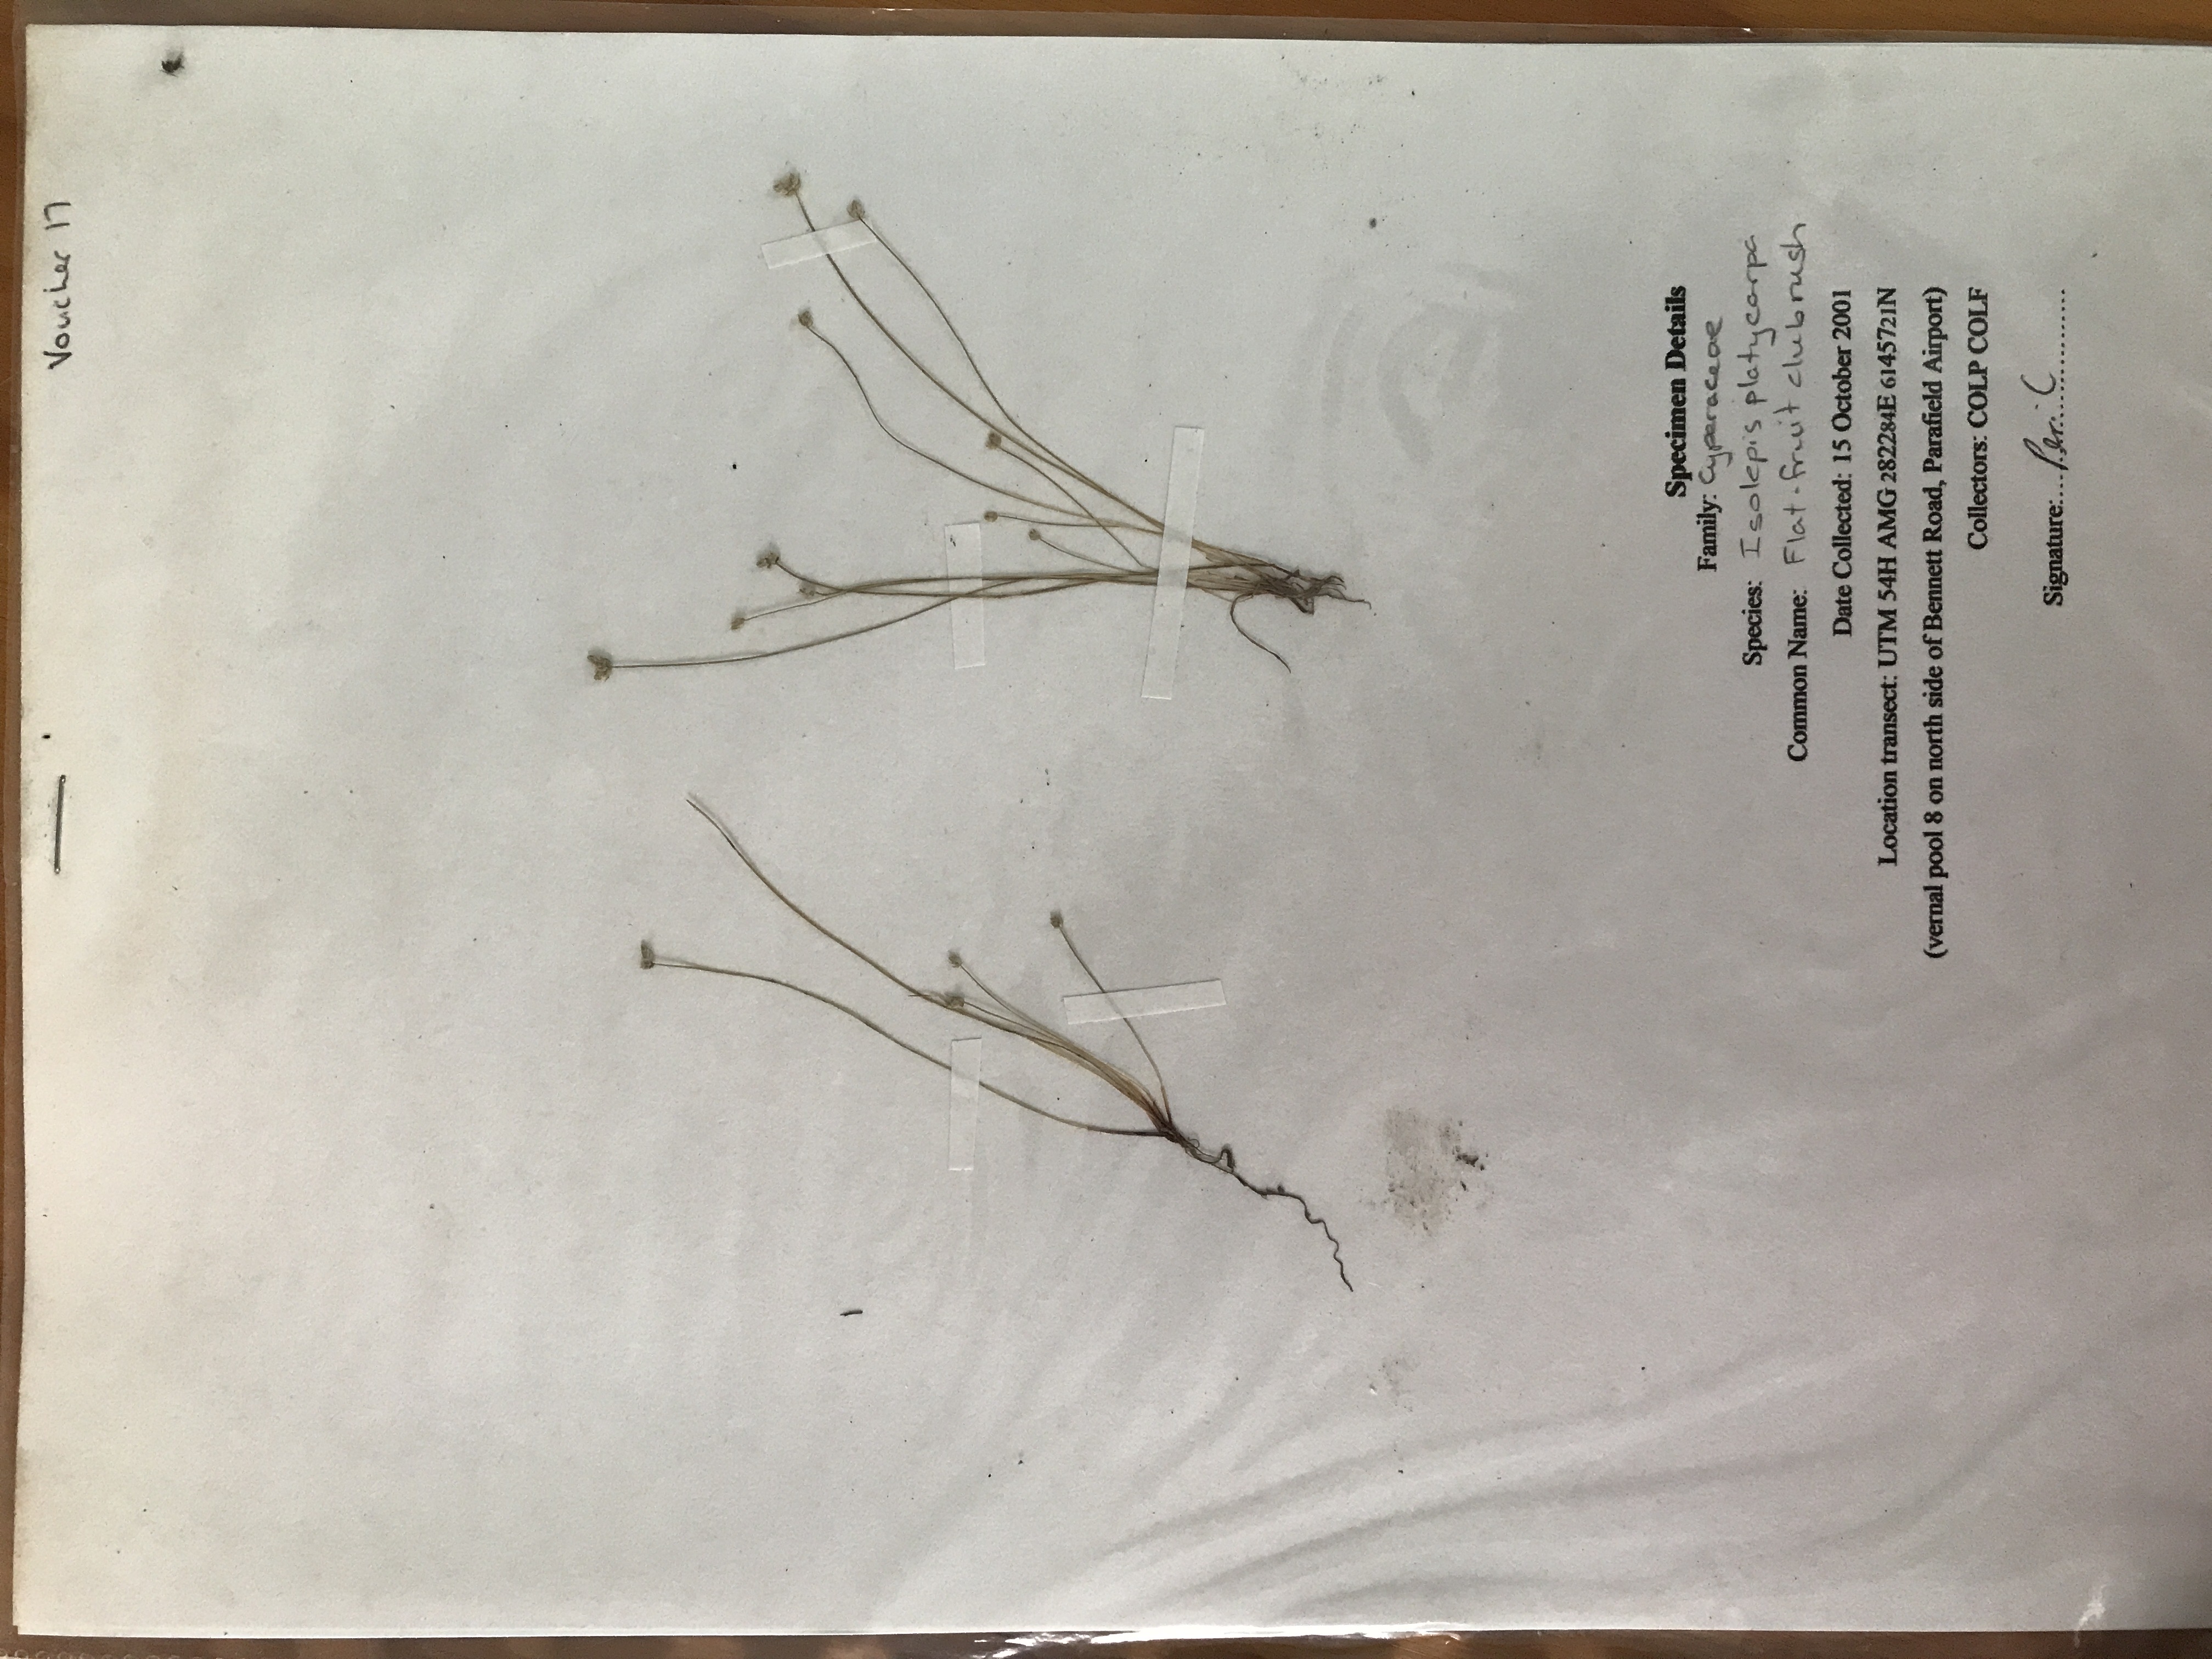 Voucher 17
Specimen Details
Family: Cyperaceae
Species: Isolepis platycarpa
Common Name: Flat-fruit clubrush
Date Collected: 15 October 2001
Location transect: UTM 54H AMG 282284E 6145721N
(vernal pool 8 on north side of Bennett Road, Parafield Airport)
Collectors: COLP COLF
Signature: Peri C